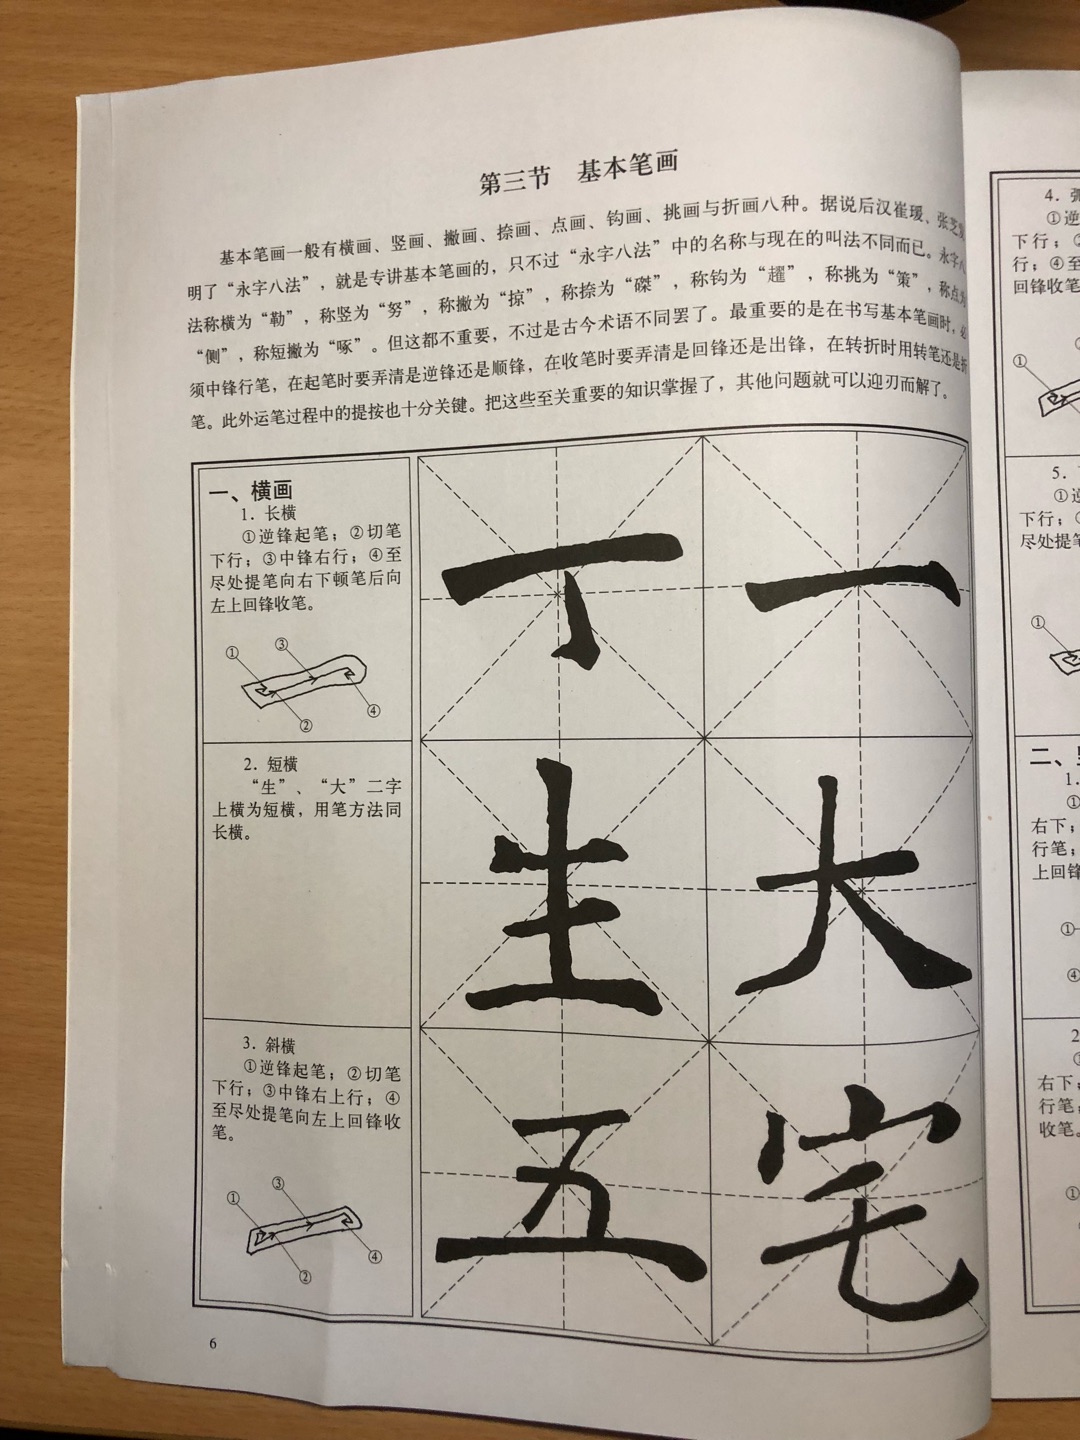 第三节 基本笔画
基本笔画一般有横画、竖画、撇画、捺画、点画、钩画、挑画与折画八种。据说后汉崔瑗、张芝发
明了“永字八法”，就是专讲基本笔画的，只不过“永字八法”中的名称与现在的叫法不同而已。永字八
法称横为“勒”，称竖为“努”，称撇为“掠”，称捺为“磔”，称钩为“趯”，称挑为“策”，称点为
“侧”，称短撇为“啄”。但这都不重要，不过是古今术语不同罢了。最重要的是在书写基本笔画时，必
须中锋行笔，在起笔时要弄清是逆锋还是顺锋，在收笔时要弄清是回锋还是出锋，在转折时用转笔还是折
笔。此外运笔过程中的提按也十分关键。把这些至关重要的知识掌握了，其他问题就可以迎刃而解了。
一、横画
1．长横
①逆锋起笔；②切笔
下行；③中锋右行；④至
尽处提笔向右下顿笔后向
左上回锋收笔。
①
③
②
④
丁 一
2．短横
“生”、“大”二字
上横为短横，用笔方法同
长横。
生 大
3．斜横
①逆锋起笔；②切笔
下行；③中锋右上行；④
至尽处提笔向左上回锋收
笔。
①
③
②
④
五 宅
6
4．
①逆
下行；
行；④至
回锋收笔
①
5．
①逆
下行；
尽处提笔
①
二、
1．
①
右下；
行笔；
上回锋
①
④
2
右下；
行笔；
收笔。
①